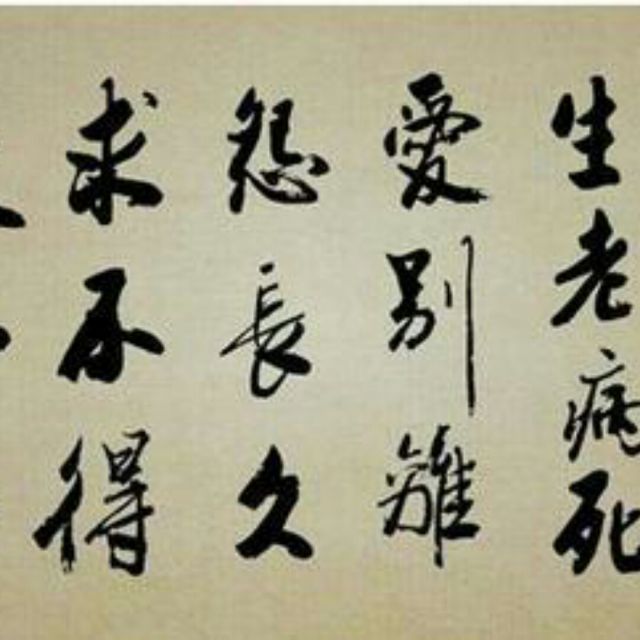 生老病死
愛别離
怨長久
求不得